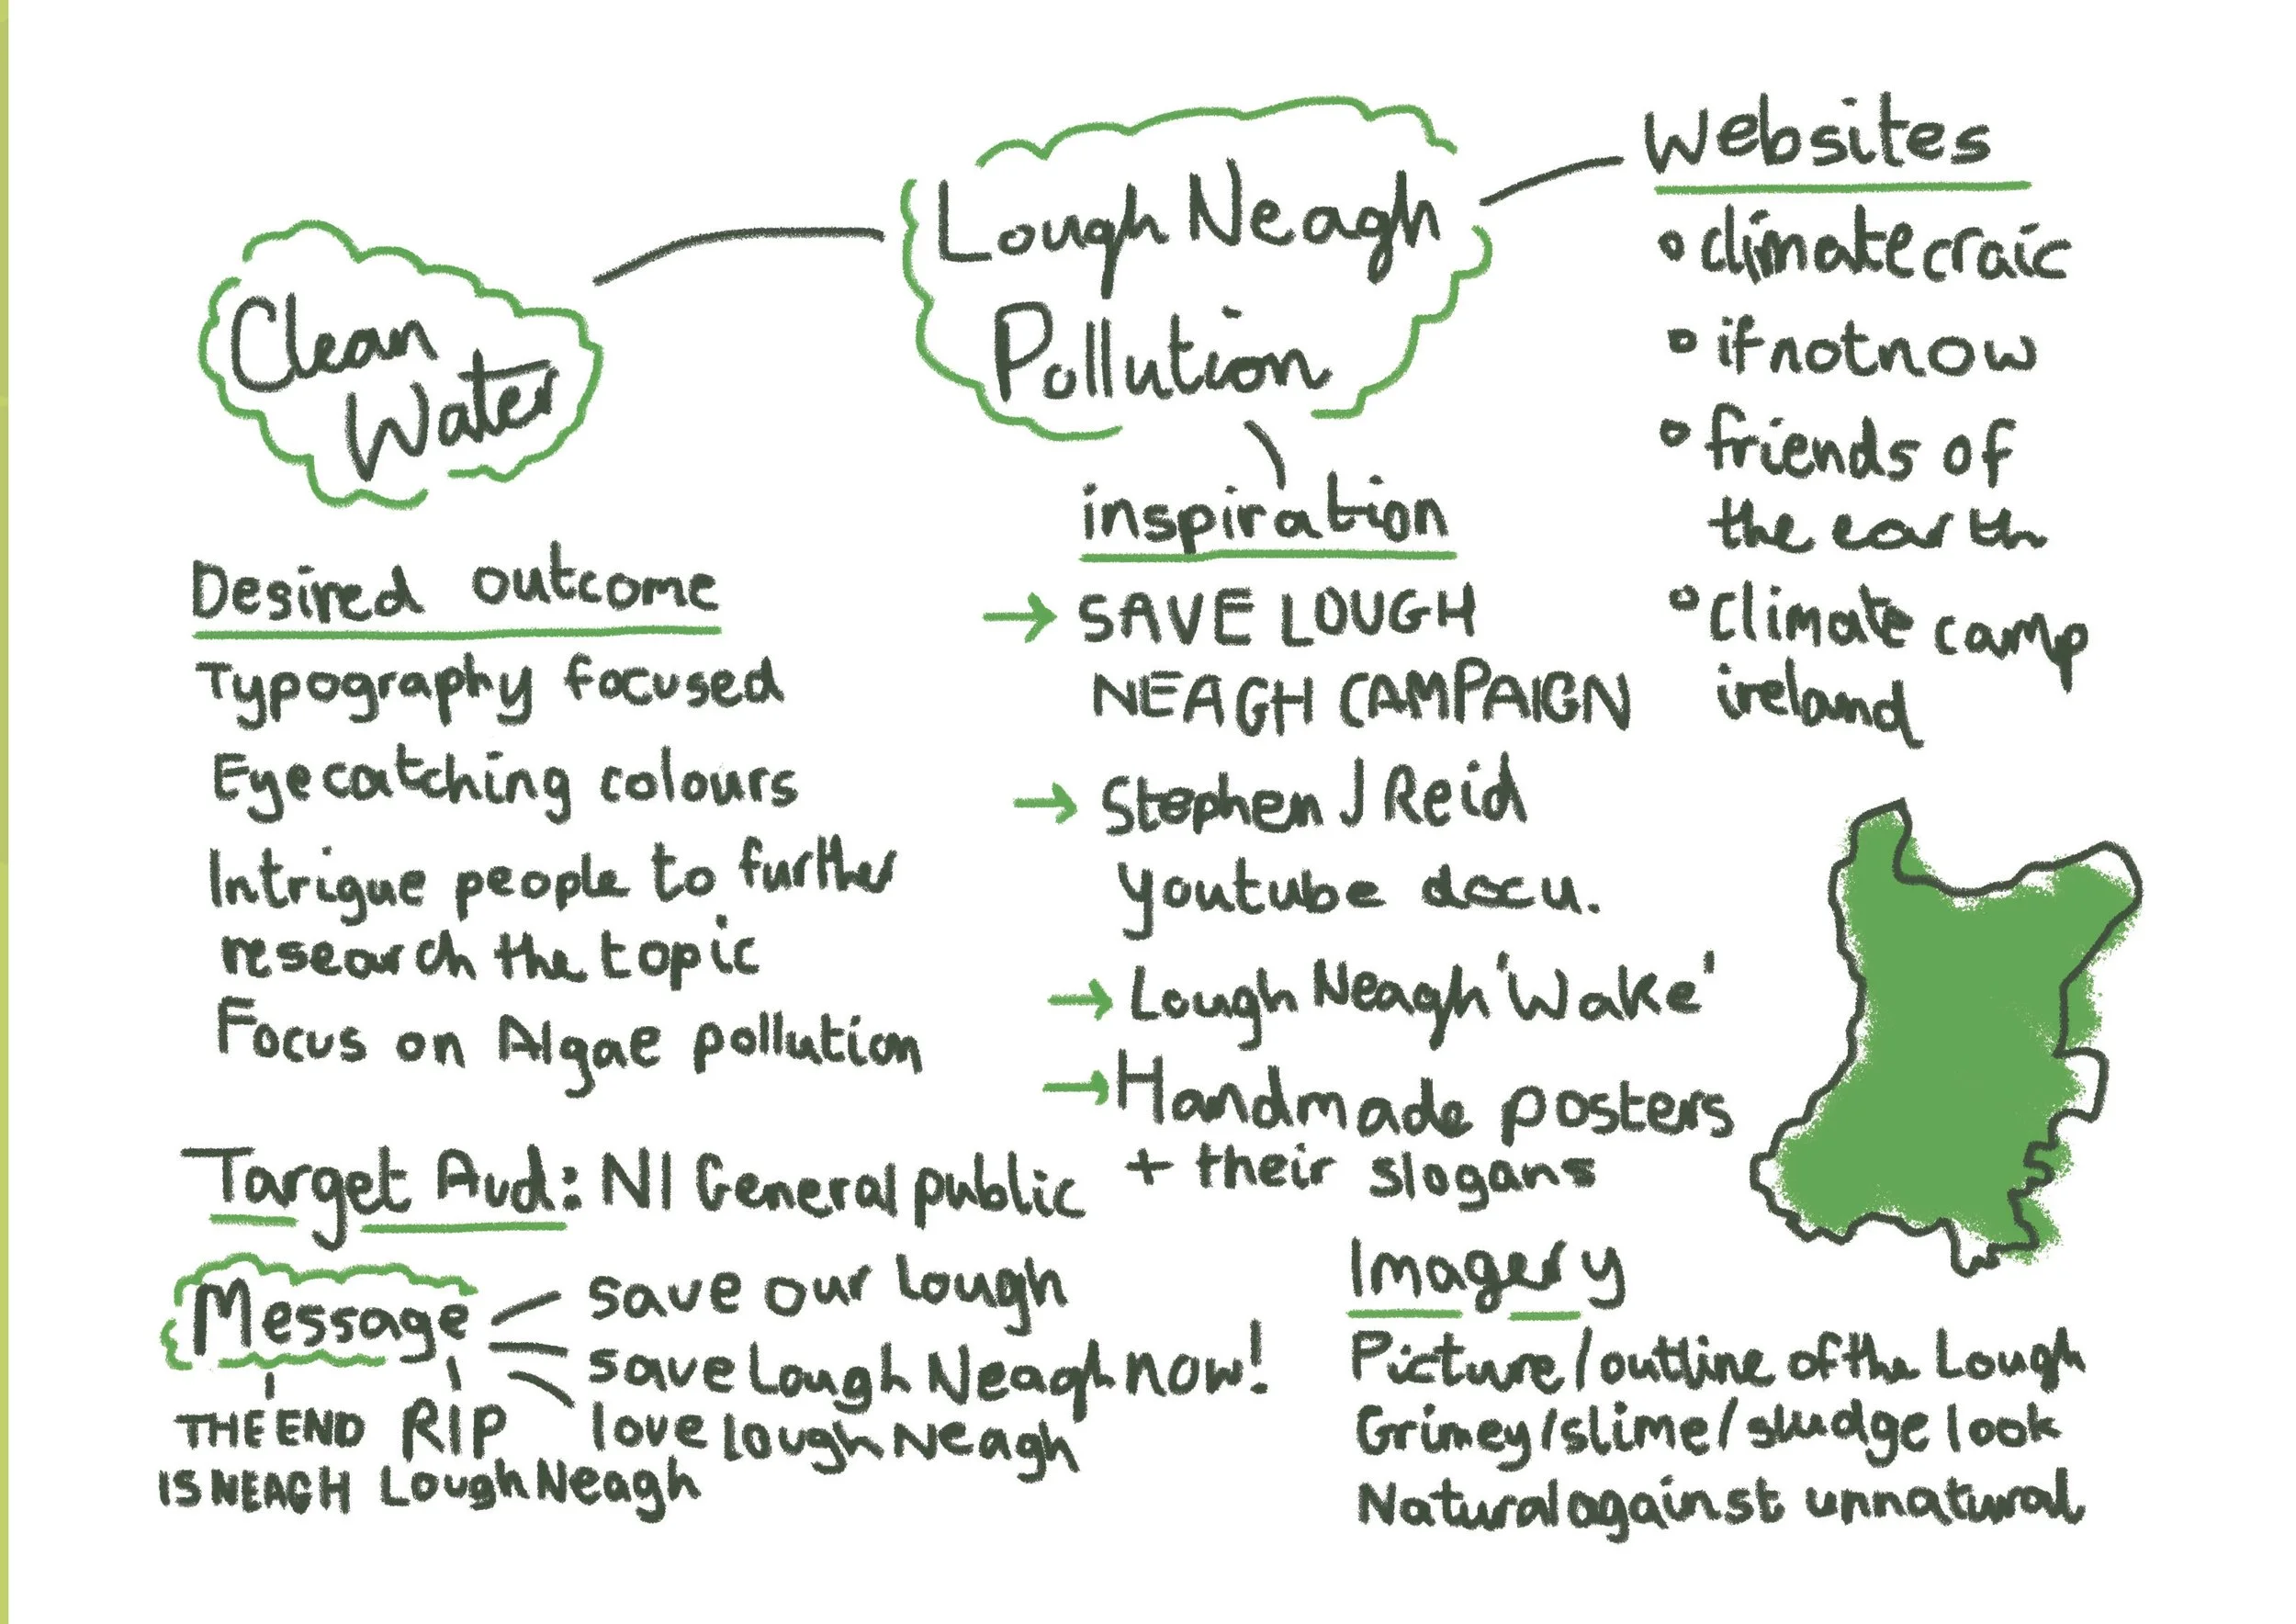 Lough Neagh
Pollution
Clean
Water
Websites
climatecraic
ifnotnow
friends of
the earth
climate camp
ireland
inspiration
→ SAVE LOUGH
NEAGH CAMPAIGN
→ Stephen J Reid
youtube docu.
→ Lough Neagh 'Wake'
→ Handmade posters
+ their slogans
Desired outcome
Typography focused
Eyecatching colours
Intrigue people to further
research the topic
Focus on Algae pollution
Target Aud: NI General public
Message
save our lough
save Lough Neagh now!
love lough Neagh
RIP
Lough Neagh
THE END
IS NEAGH
Imagery
Picture/outline of the Lough
Grimey/slime/sludge look
Natural against unnatural